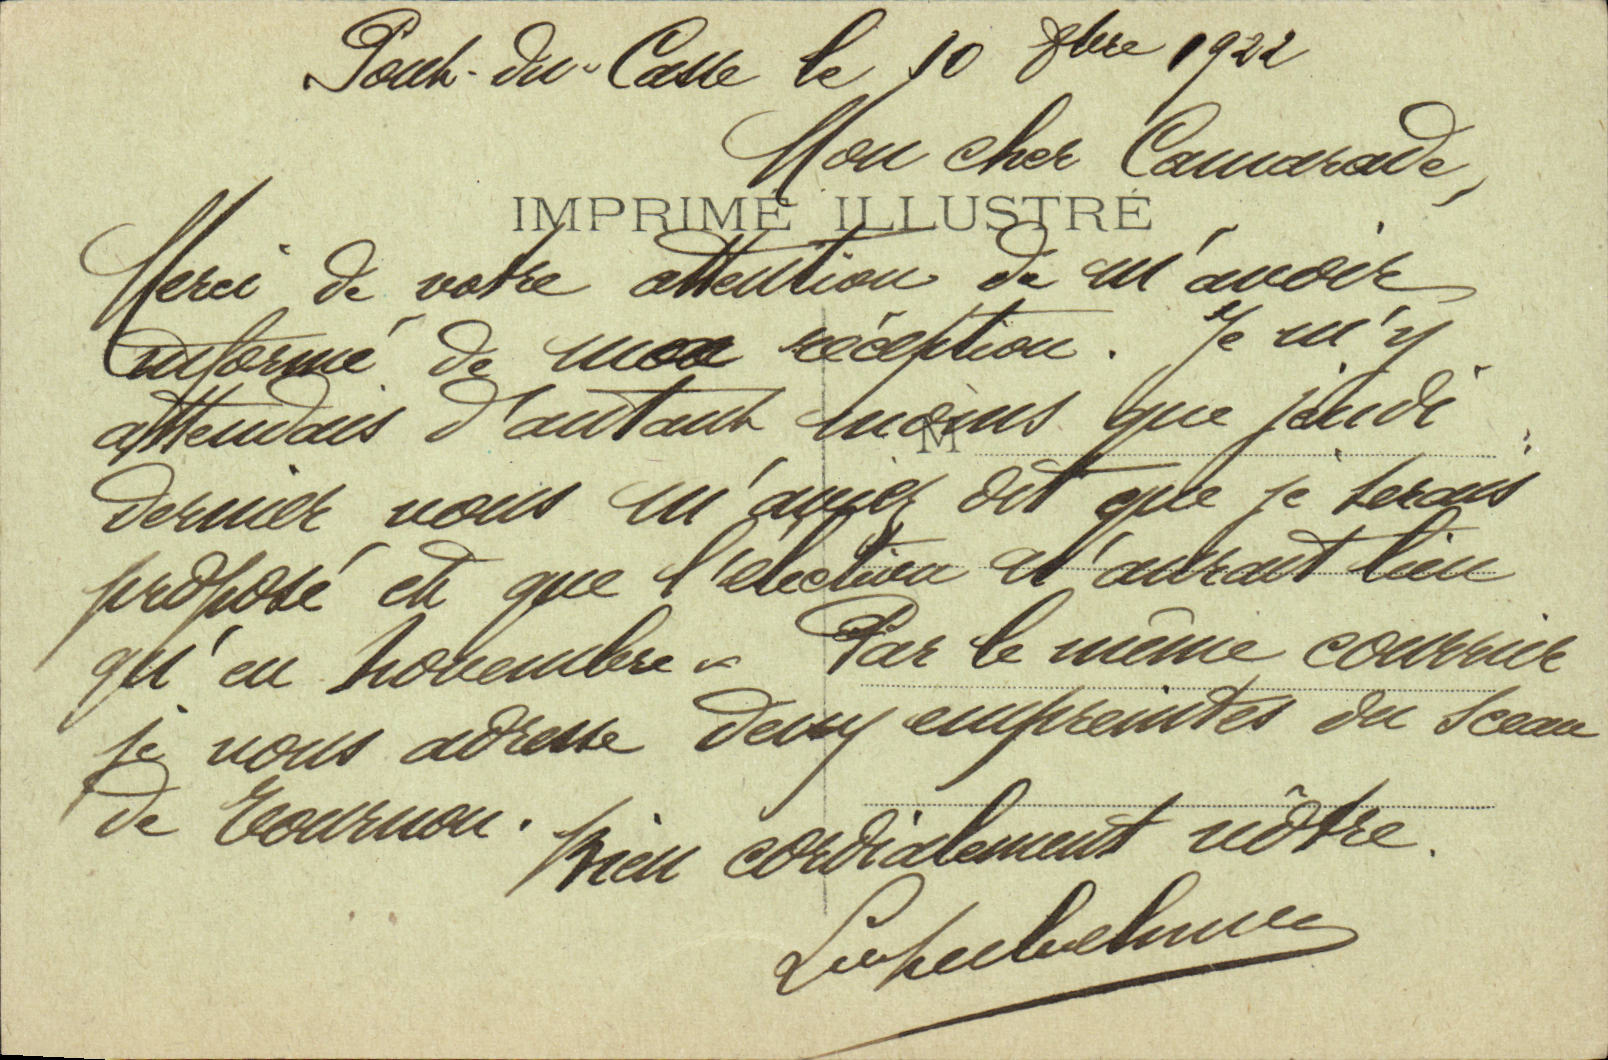 Pont-du-Casse le 10 8bre 1922
Mon cher Camarade,
IMPRIMÉ ILLUSTRÉ
Merci de votre attention de m'avoir
informé de ma réception. Je m'y
attendais d'autant moins que jeudi
M
dernier vous m'aviez dit que je serais
proposé et que l'élection n'aurait lieu
qu'en novembre. Par le même courrier
je vous adresse deux empreintes du sceau
de Tournon.
bien cordialement vôtre.